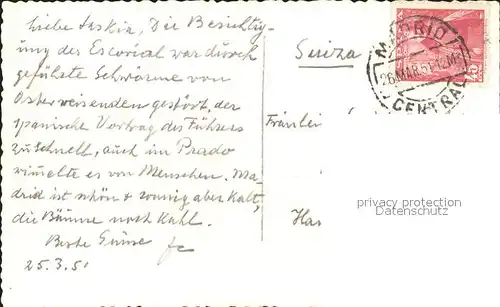 Liebe Saskia, Die Besichtig-
ung des Escorial war durch
geführte Schwärme von
Osterreisenden gestört, der
spanische Vortrag des Führers
zu schnell, auch im Prado
wimmelte es von Menschen. Ma-
drid ist schön & sonnig aber kalt,
die Bäume noch kahl.
Beste Grüsse
25.3.51
Suiza
Fräulei
Ha
MADRID
26 MAR 51 12M
CENTRAL
privacy protection
Datenschutz